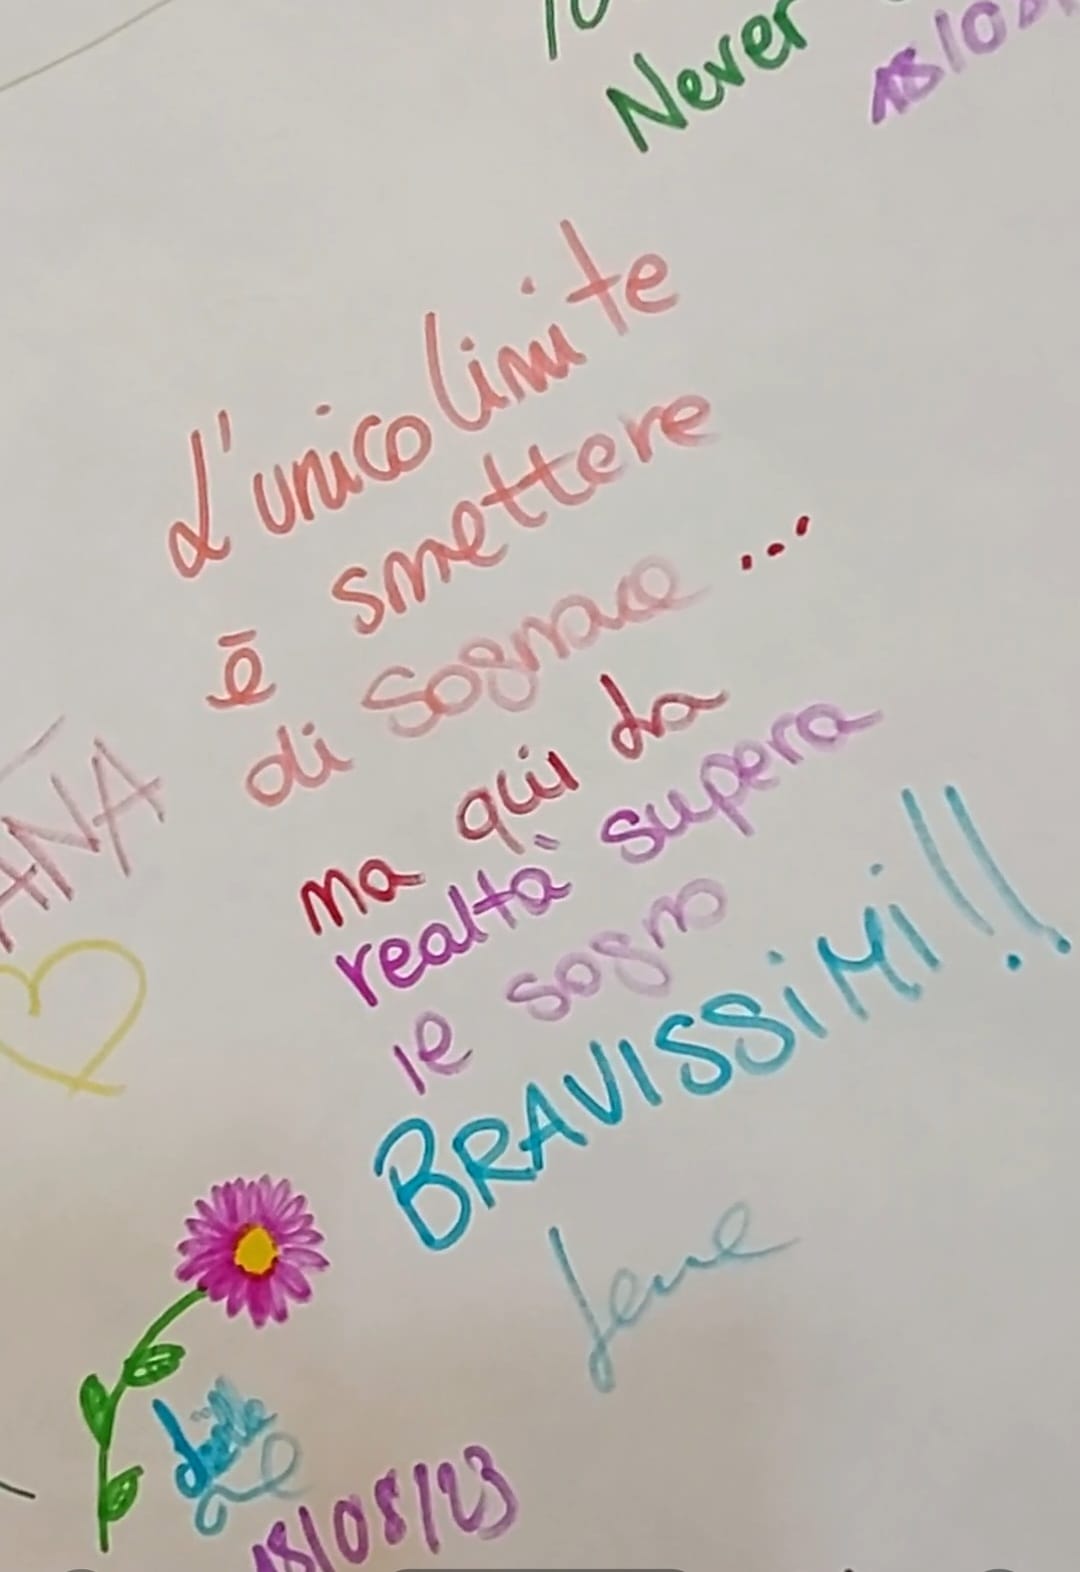 Never
L'unico limite
ē smettere
di sognare ...
ma qui la
realtà supera
le sogno
BRAVISSiMi!!
18/08/23